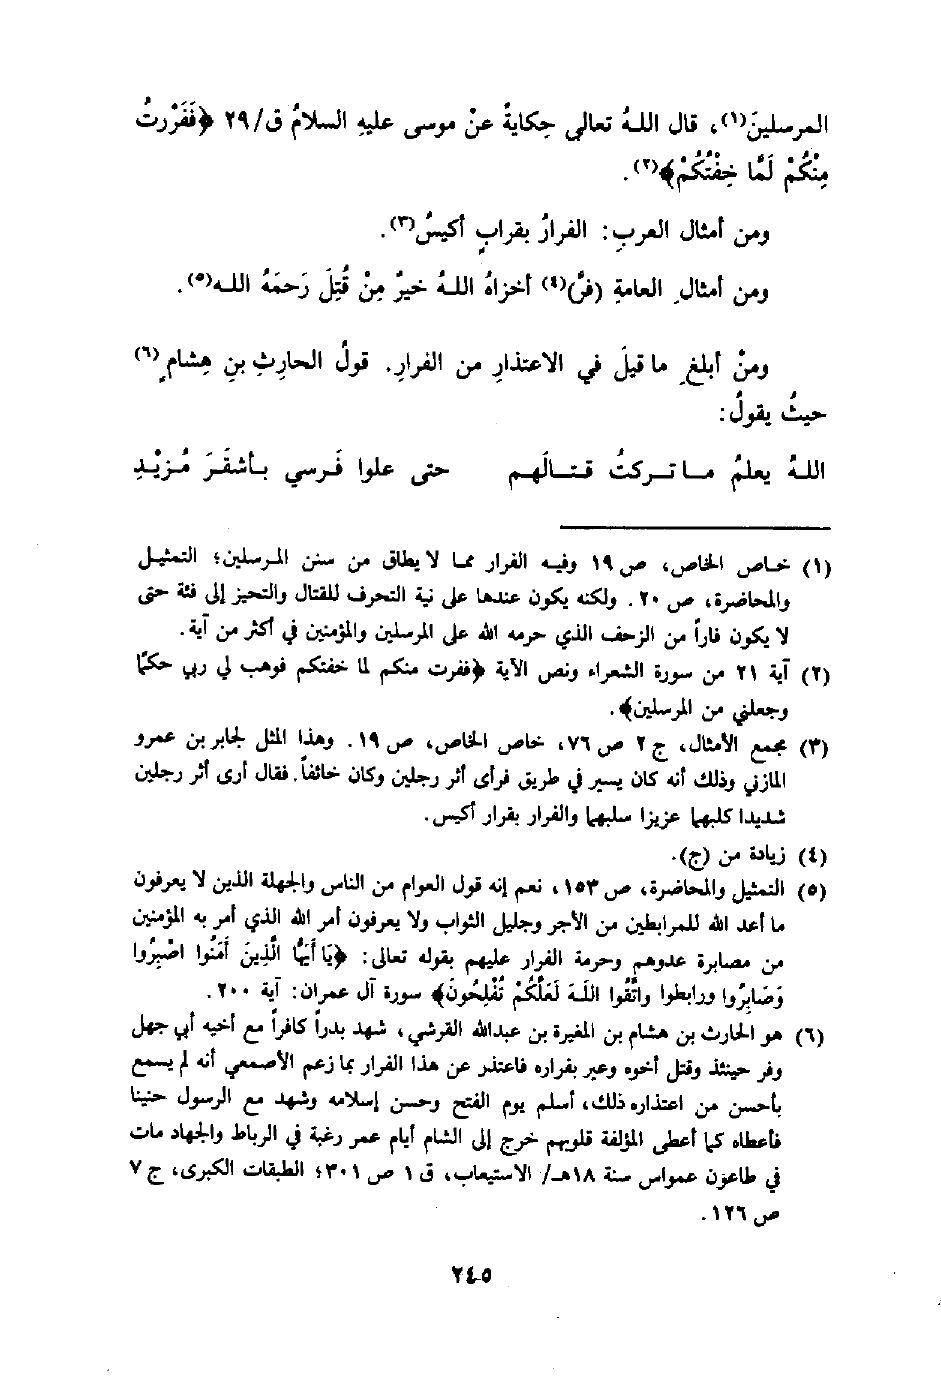 المرسلينَ(١)، قال اللهُ تعالى حِكايةً عنْ موسى عليهِ السلامُ ق/٢٩ ﴿فَفَرْرتُ
مِنْكُمْ لَمَّا خِفْتُكُمْ﴾(٢).
ومن أمثال العربِ: الفرارُ بقرابٍ أكيسُ(٣).
ومن أمثالِ العامةِ (فرَّ)(٤) أخزاهُ اللهُ خيرٌ مِنْ قُتِلَ رَحمَهُ الله(٥).
ومنْ أبلغِ ما قيلَ في الاعتذارِ من الفرارِ. قولُ الحارثِ بنِ هِشامٍ(٦)
حيثُ يقولُ:
اللهُ يعلمُ مـا تـركتُ قتـالَهم حتى علوا فَرسي بـأشقَرَ مُزيْدِ
(١) خـاص الخاص، ص ١٩ وفيـه الفرار ممـا لا يطاق من سنن المرسلين؛ التمثيـل
والمحاضرة، ص ٢٠. ولكنه يكون عندها على نية التحرف للقتال والتحيز إلى فئة حتى
لا يكون فاراً من الزحف الذي حرمه الله على المرسلين والمؤمنين في أكثر من آية.
(٢) آية ٢١ من سورة الشعراء ونص الآية ﴿ففرت منكم لما خفتكم فوهب لي ربي حكمًا
وجعلني من المرسلين﴾.
(٣) مجمع الأمثال، ج ٢ ص ٧٦، خاص الخاص، ص ١٩. وهذا المثل لجابر بن عمرو
المازني وذلك أنه كان يسير في طريق فرأى أثر رجلين وكان خائفاً. فقال أرى أثر رجلين
شديدا كلبهما عزيزا سلبهما والفرار بقرار أكيس.
(٤) زيادة من (ج).
(٥) التمثيل والمحاضرة، ص ١٥٣، نعم إنه قول العوام من الناس والجهلة الذين لا يعرفون
ما أعد الله للمرابطين من الأجر وجليل الثواب ولا يعرفون أمر الله الذي أمر به المؤمنين
من مصابرة عدوهم وحرمة الفرار عليهم بقوله تعالى: ﴿يَا أَيهَّا الَّذِينَ آمَنُوا اصْبِرُوا
وَصَابِرُوا ورابطوا واتَّقُوا اللهَ لَعَلَّكُمْ تُفْلِحُونَ﴾ سورة آل عمران: آية ٢٠٠.
(٦) هو الحارث بن هشام بن المغيرة بن عبدالله القرشي، شهد بدراً كافراً مع أخيه أبي جهل
وفر حينئذ وقتل أخوه وعير بفراره فاعتذر عن هذا الفرار بما زعم الأصمعي أنه لم يسمع
بأحسن من اعتذاره ذلك، أسلم يوم الفتح وحسن إسلامه وشهد مع الرسول حنينا
فأعطاه كما أعطى المؤلفة قلوبهم خرج إلى الشام أيام عمر رغبة في الرباط والجهاد مات
في طاعون عمواس سنة ١٨هـ/ الاستيعاب، ق ١ ص ٣٠١؛ الطبقات الكبرى، ج ٧
ص ١٢٦.
٢٤٥